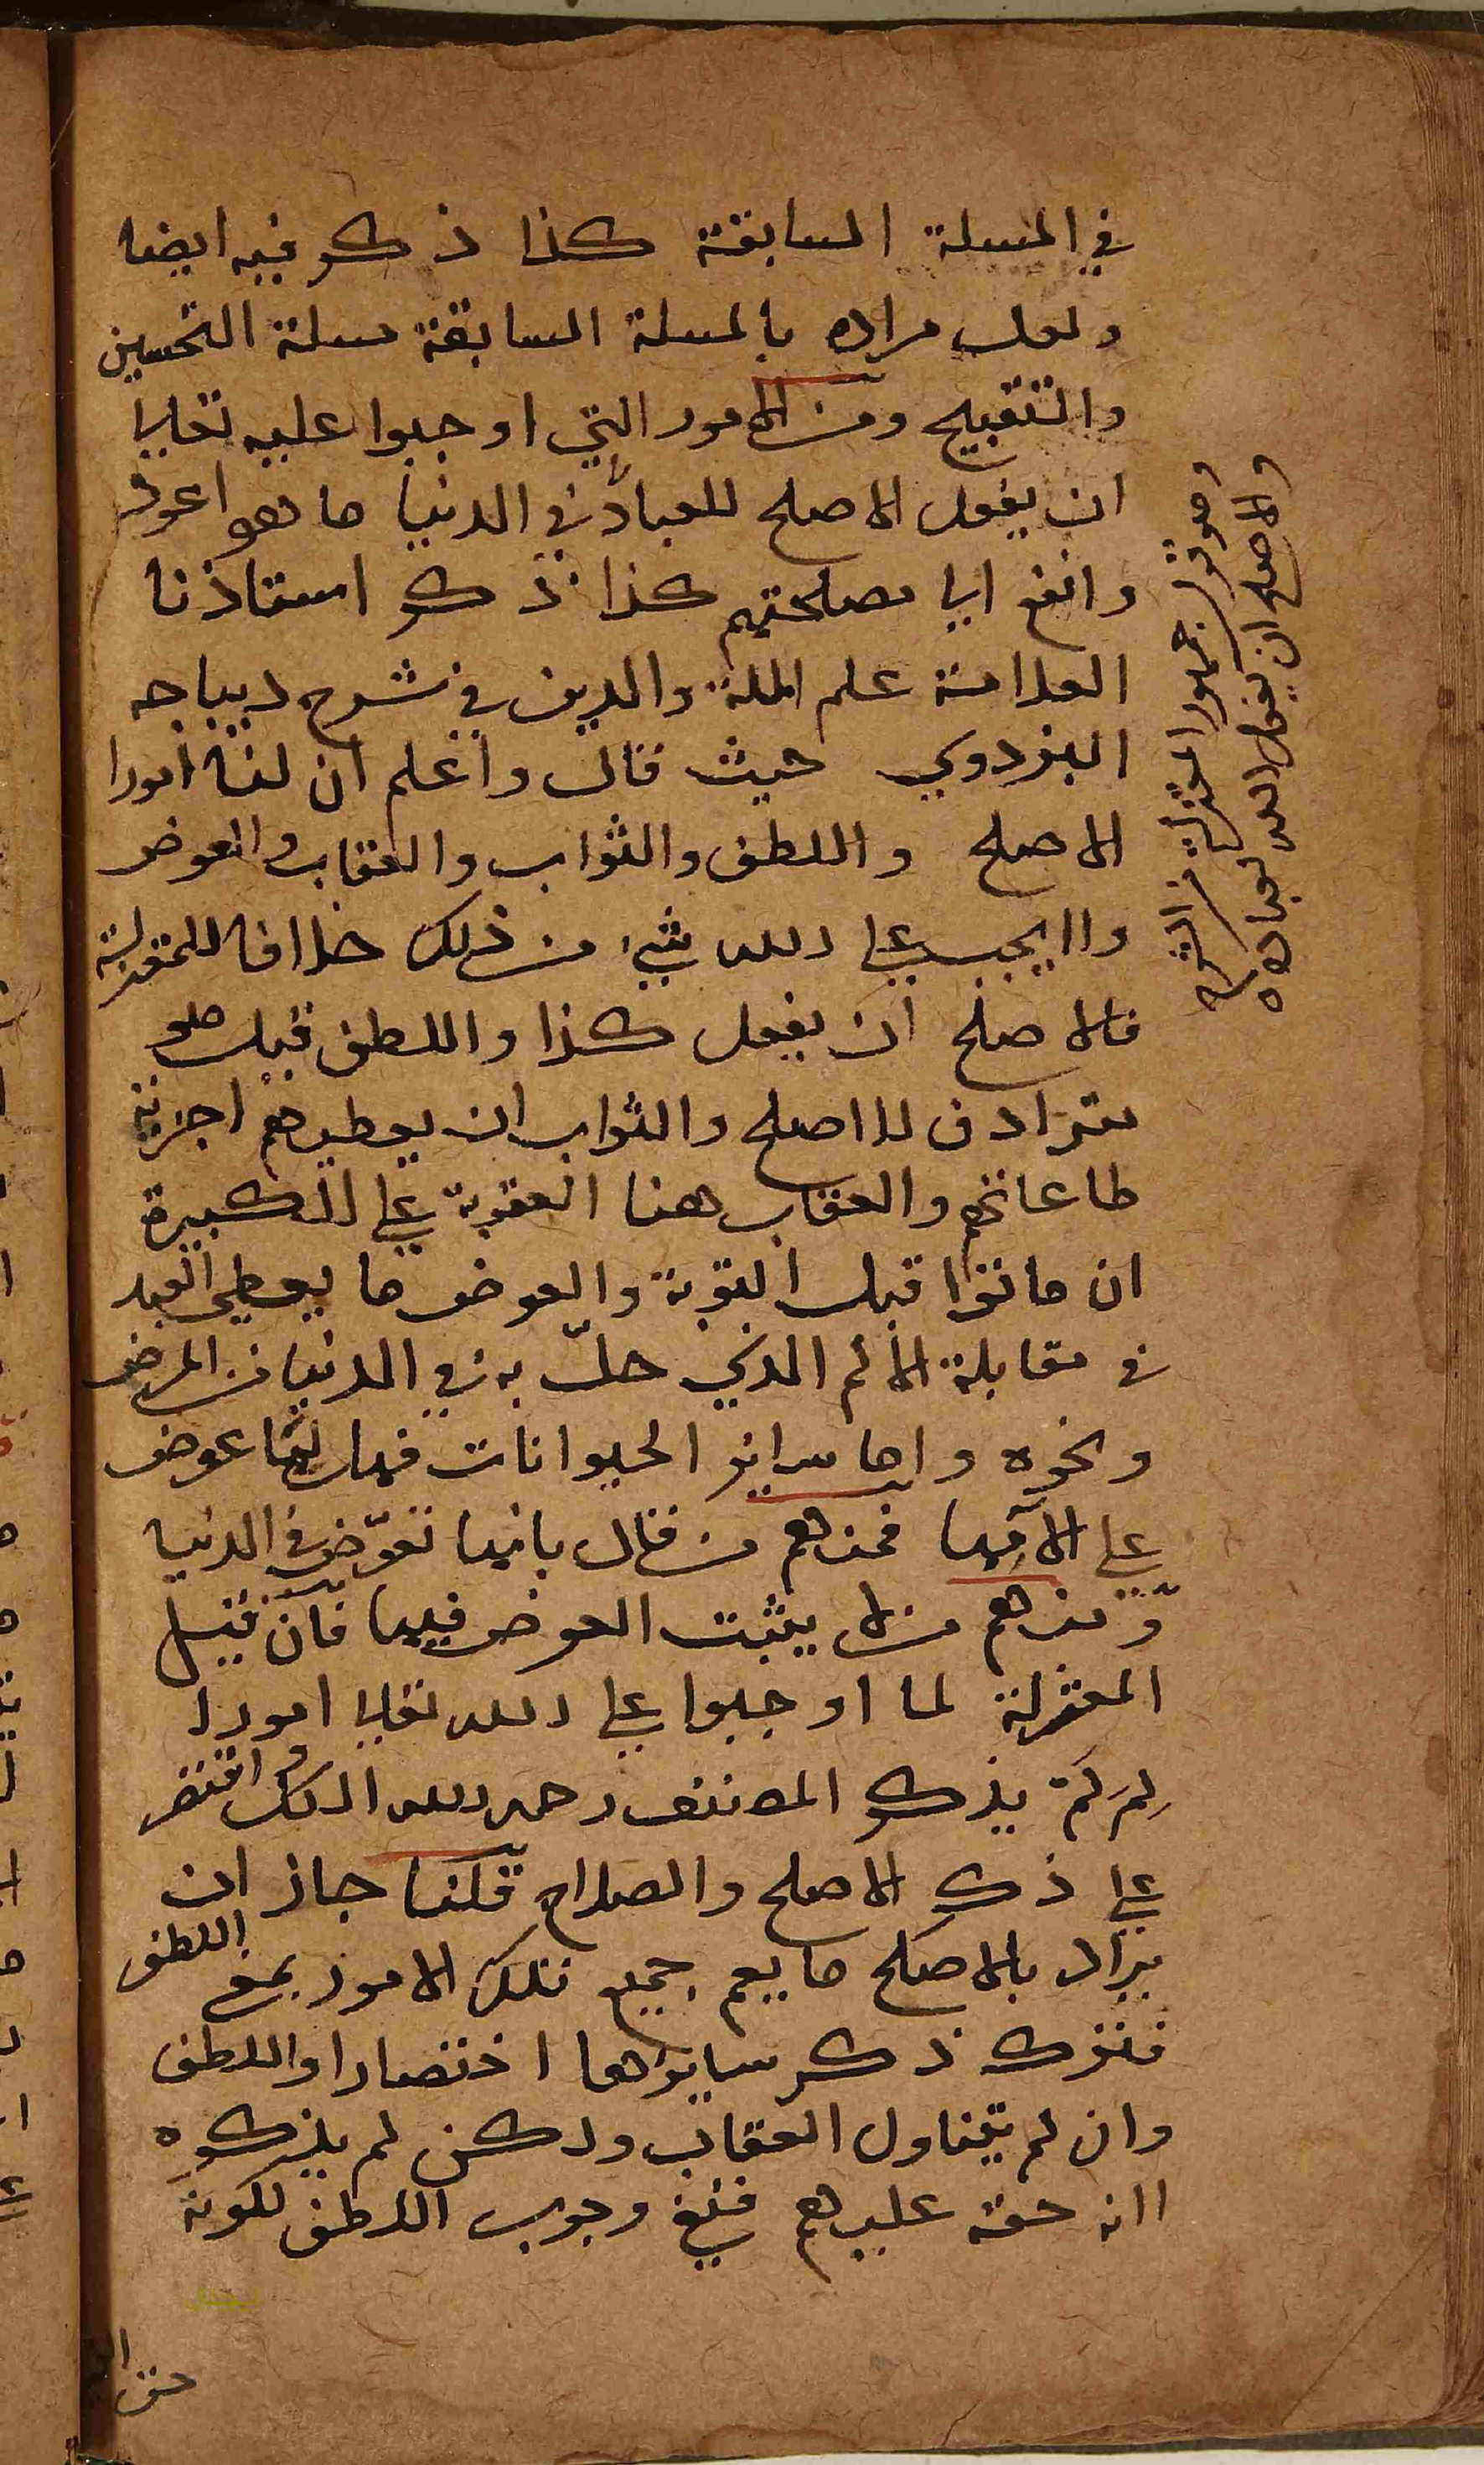 في المسلة السابقة كذا ذكر فيه ايضا
ولعل مراده بالمسلة السابقة مسلة التحسين
والتقبيح ومن الامور التي اوجبوا عليه تعالى
ان يفعل الاصلح للعباد في الدنيا ما هو اعود
وانفع اي مصلحتهم كذا ذكر استاذنا
العلامة علم الملة والدين في شرح ديباجه
البزدوي حيث قال واعلم ان لنا امورا
الاصلح واللطف والثواب والعقاب والعوض
ولا يجب على الله شيء من ذلك خلافا للمعتزلة
فالاصلح ان يفعل كذا واللطف قيل هو
مترادف للاصلح والثواب ان يعطيهم اجزية
طاعاتهم والعقاب هنا العقوبة على الكبيرة
ان ماتوا قبل التوبة والعوض ما يعطي العبد
في مقابلة الالم الذي حلّ به في الدنيا من المرض
ونحوه واما سراير الحيوانات فهل لها عوض
على الامها فمنهم من قال بانها تعوّض في الدنيا
ومنهم من لا يثبت العوض فيها فان قيل
المعتزلة لما اوجبوا على الله تعالى امورا
لِمَ لَمْ يذكر المصنف رحمه الله الكل واقتصر
على ذكر الاصلح والصلاح قلنا جاز ان
يراد بالاصلح ما يعم جميع تلك الامور بمعنى اللطف
فترك ذكر سايرها اختصارا واللطف
وان لم يتناول العقاب ولكن لم يذكره
لانه حقه عليهم فنفي وجوب اللطف لكونه
حق
والاصلح ان يفعل الله لعباده
وهو قول جمهور المعتزلة من